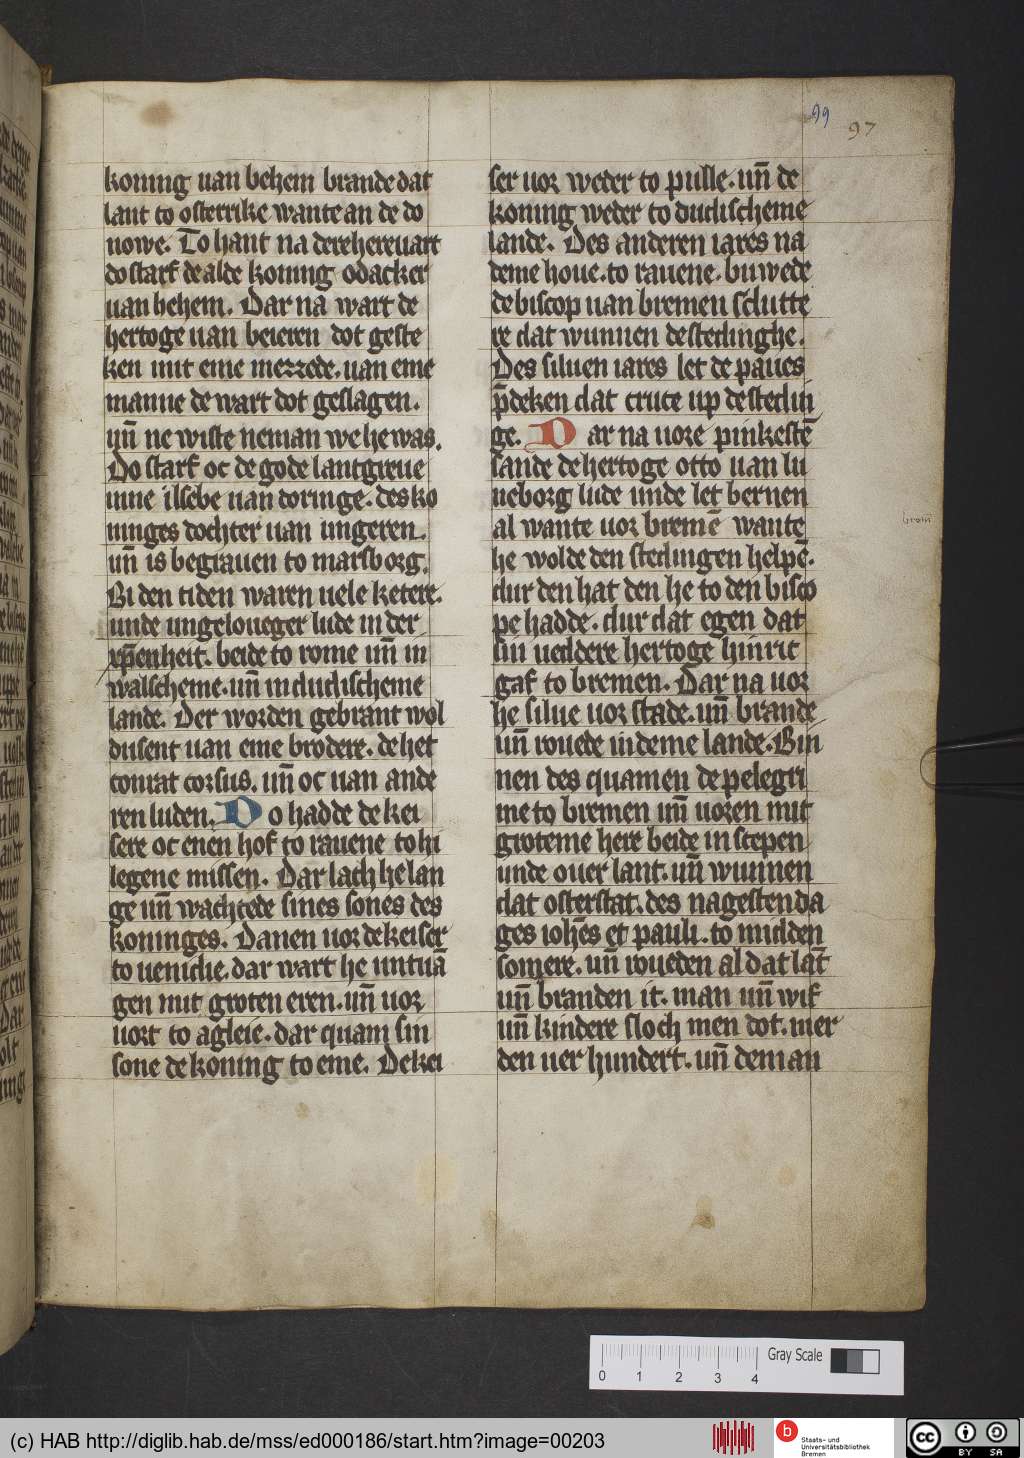 99
97
koning uan behem brande dat
lant to osterrike wante an de do
nowe. To hant na dere hereuart
do starf de alde koning odacker
uan behem. Dar na wart de
hertoge uan beieren dot geste
ken mit eme mezzede. uan eme
manne de wart dot geslagen.
uñ ne wiste neman we he was.
Do starf oc de gode lantgreue
inne ilsebe uan doringe. des ko
ninges dochter uan ungeren.
uñ is begrauen to marsborg.
Bi den tiden waren uele ketere.
unde ungeloueger lude in der
xp̄enheit. beide to rome uñ in
walscheme. uñ in dudischeme
lande. Der worden gebrant wol
dusent uan eme brodere. de het
conrat corsus. uñ oc uan ande
ren luden. Do hadde de kei
sere oc enen hof to rauene to hi
legene missen. Dar lach he lan
ge uñ wachtede sines sones des
koninges. Danen uor de keiser
to uenidie. dar wart he untuā
gen mit groten eren. uñ uor
uort to agleie. dar quam sin
sone de koning to eme. De kei
ser uor weder to pulle. uñ de
koning weder to dudischeme
lande. Des anderen iares na
deme houe. to rauene. buwede
de biscop uan bremen slutte
re dat wunnen de stedinghe.
Des siluen iares let de paues
p̄deken dat cruce up de stedin
ge. Dar na uore pinkestē
sande de hertoge otto uan lu
neborg lude unde let bernen
al wante uor bremē wante
he wolde den stedingen helpē.
dur den hat den he to den bisco
pe hadde. dur dat egen dat
sin ueddere hertoge hinric
gaf to bremen. Dar na uor
he silue uor stade. uñ brande
uñ rouede in deme lande. Bin
nen des quamen de pelegri
me to bremen uñ uoren mit
groteme here beide in scepen
unde ouer lant. uñ wunnen
dat osterstat. des nagesten da
ges iohēs et pauli. to midden
somere. uñ roueden al dat lāt
uñ branden it. man uñ wif
uñ kindere sloch men dot. mer
den uer hundert. uñ deman
0 1 2 3 4
Gray Scale
(c) HAB http://diglib.hab.de/mss/ed000186/start.htm?image=00203
b
Staats- und
Universitätsbibliothek
Bremen
cc
BY SA